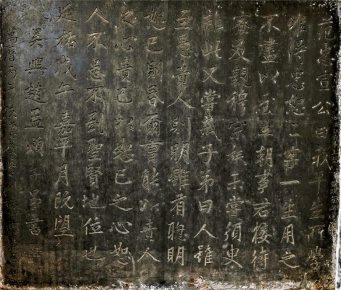 范忠宣公曰我平生所學
唯得忠恕二字一生用之
不盡以至立朝事君接待
寮友親穆宗族未嘗須臾
離此又嘗戒子弟曰人雖
至愚責人則明雖有聰明
恕己則昏爾曹能以責人
之心責己以恕己之心恕
人不患不到聖賢地位也
延祐戊午嘉平月既望
吳興趙孟頫子昂書